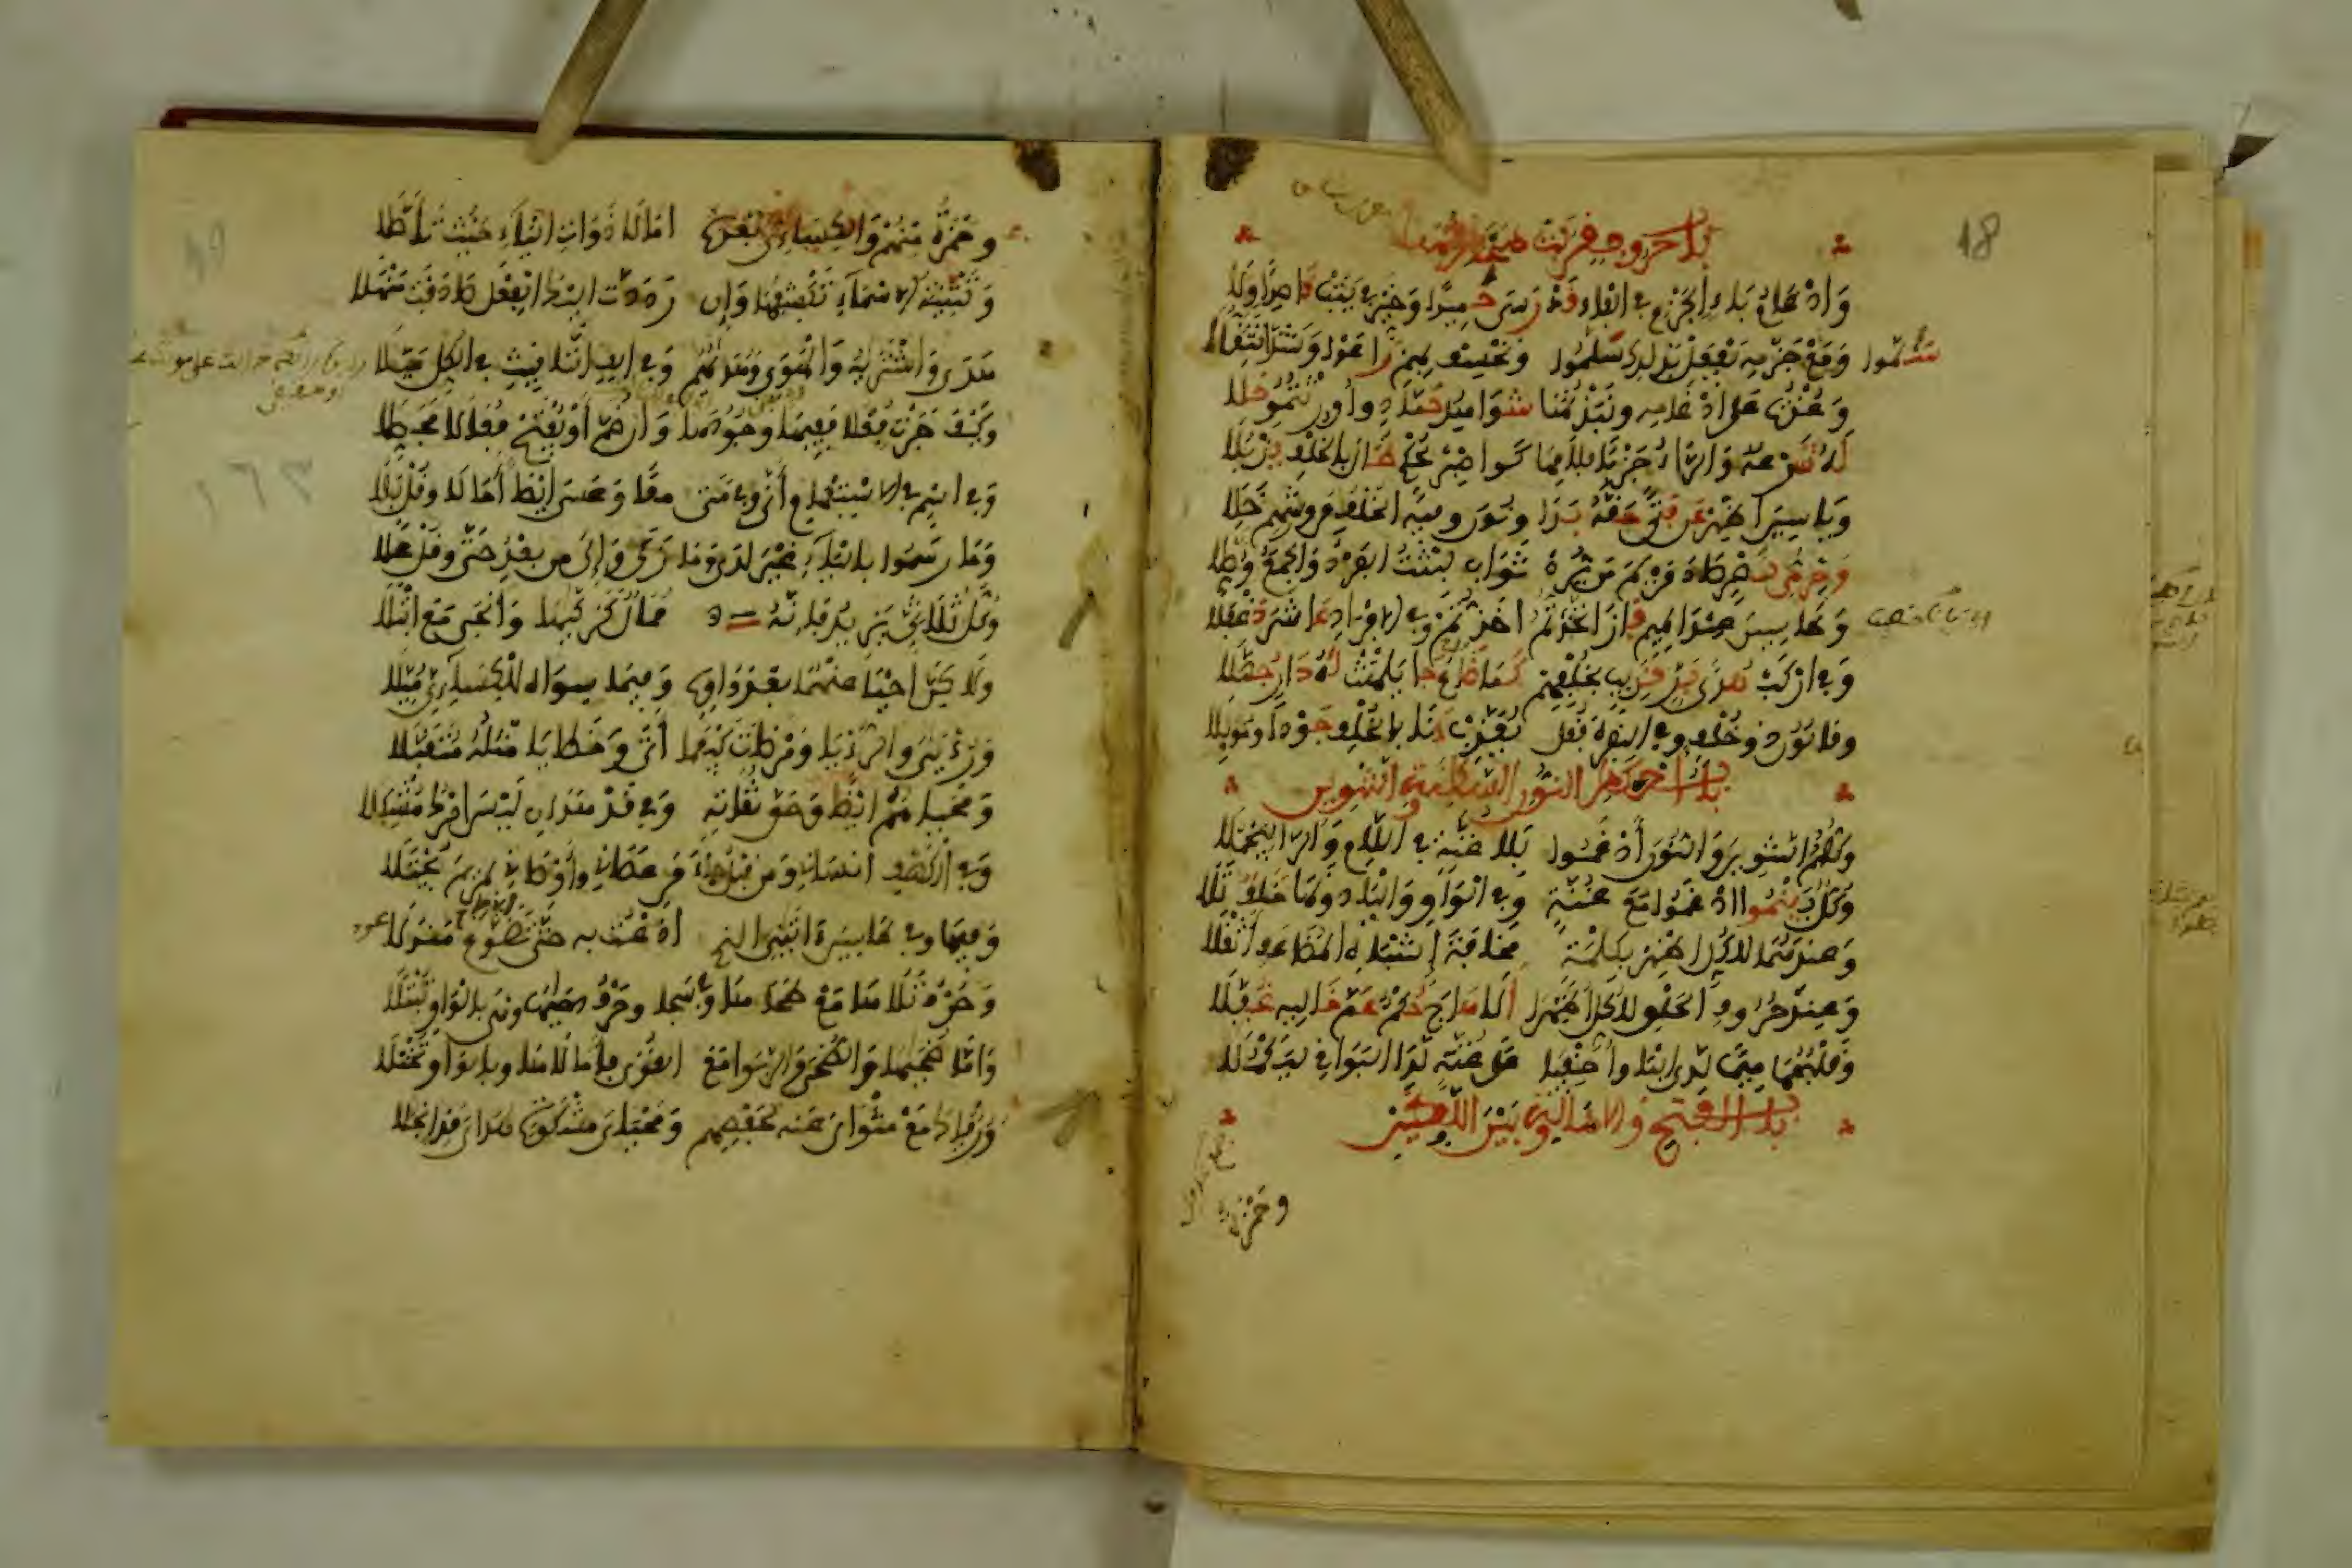 18
باب حروف قربت مخارجها
وَإدْغَامُ بَاءِ الجزْمِ في الفاء قَدْ رَسَى حَمِيدًا وَخَيِّرْ في يَتُبْ قَاصِدًا وَلَا
وَمَعْ جَزْمِهِ يَفْعَلْ بذلك سَلَّمُوا وَنَخْسِف بهِمْ رَاعَوْا وَشَذَّا تَثَقُّلَا
سَلَّمُوا
وَعُذْتُ عَلَى إدْغَامِهِ ونَبَذْتُهَا شَوَاهِدُ حَمَّادٍ وأُورِثْتُمُو حَلَا
لَهُ شَرْعُهُ وَالرَّاءُ جَزْمًا بِلَامِهَا كَواصْبِرْ لِحُكْمِ طَالَ بالخلْفِ يَذْبُلَا
وَيَاسِينَ اظْهِرْ عَن فَتًى حَقُّهُ بَدَا وَنُون وفِيهِ الخلْفُ عن ورشِهِمْ خَلَا
وَحِرْمِيُّ نَصْرٍ صَادَ مَرْيَمَ مَن يُرِدْ ثَوَابَ لَبِثْتَ الفَرْدَ وَالجمْعَ وَصَّلَا
وَطَاسِينَ عِنْدَ الميمِ فَازَ اتَّخَذْتُمُ أخَذْتُمْ وَفي الافْرَادِ عَاشَرَ دَغْفَلَا
وَفي ارْكَبْ هُدَى بَرٍّ قَرِيبٍ بخُلْفِهِمْ كَمَا ضَاعَ جَا يَلْهَثْ لَهُ دَارِ جُهَّلَا
وقَالُونُ ذُو خُلْفٍ وفي البقرة فَقُل يُعَذِّبْ دَنَا بالخلْفِ جَوْدًا ومُوبِلَا
باب احكام النون الساكنة والتنوين
وَكُلُّهُمُ التنوينَ وَالنونَ أدْغَمُوا بِلَا غُنَّةٍ في اللَّامِ وَالرَّا لِيَجْمُلَا
وَكُلٌّ بِيَنْمُوا ادْغَمُوا مَعَ غُنَّةٍ وفي الوَاوِ وَاليَا دُونَهَا خَلَفٌ تَلَا
وَعِنْدَهُمَا لِلكُلِّ اظْهِرْ بِكِلْمَةٍ مَخَافَةَ إشْبَاهِ المضَاعَفِ اثْقَلَا
وَعِندَ حُرُوفِ الحَلْقِ للكُلِّ أظْهِرَا ألَا هَاجَ حُكْمٌ عَمَّ خَالِيهِ غُفَّلَا
وَقَلْبُهُمَا مِيمًا لَدَى اليَا وأخْفِيَا عَلَى غُنَّةٍ لَدَا البَوَاقِي لِيَكْمُلَا
باب الفتح والامالة وبين اللفظين
وحمزة
وحَمْزَةُ مِنْهُمْ وَالكِسَاءِيُّ بَعْدَهُ امَالَا ذَوَاتِ اليَاءِ حَيْثُ تَأَصَّلَا
وَتَثْنِيَةُ الاسْمَاءِ تَكْشِفُهَا وَإن رَدَدْتَ اليْكَ الفِعْلَ صَادَفْتَ مَنْهَلَا
هَدَى وَاشْتَرَيهُ وَالهوَى وَهُدَاهُمُ وَفي الِفِ التَّانِيثِ في الكُلِّ مَيَّلَا
وَكَيْفَ جَرَتْ فَعْلَى فَفِيهَا وجُودُهَا وَإن ضُمَّ أوْ يُفْتَحْ فُعَالَى فَحَصِّلَا
وَفي اسْمٍ في الاسْتِفْهَامِ أنَّى وفي مَتَى مَعًا وَعَسَى ايْضًا أمَالَا وَقُلْ بَلَى
وَمَا رَسَمُوا باليَاءِ غَيْرَ لَدَى وَمَا زَكَى وَإلَى مِن بَعْدُ حَتَّى وقُلْ عَلَى
وَكُلُّ ثُلَاثِيٍّ يَزِيدُ فَإنَّهُ مُمَالٌ كَزَكَّيهَا وَأنْجَى مَعَ ابْتَلَى
وَلَاكِنَّ احْيَا عَنْهُمَا بَعْدَ وَاوِهِ وَفِيمَا سِوَاهُ لِلْكِسَاءِيِّ مُيِّلَا
وَرُءْيَيَ وَالرُّءْيَا وَمَرْضَاتِ كَيْفَمَا أتَى وَخَطَايَا مِثْلُهُ مُتَقَبَّلَا
وَمَحْيَاهُمُ ايْضًا وَحَقَّ تُقَاتِهِ وَفي قَدْ هَدَانِ لَيْسَ امْرُكَ مُشْكِلَا
وَفي الكَهْفِ انْسَانِي وَمِن قَبْلُ جَاءَ مَنْ عَصَانِي وأوْصَانِي بِمَرْيَمَ يُجْتَلَى
وَفِيهَا وفي طَاسِينَ اتَانِيَ الذِي اذَعْتُ بِهِ حَتَّى تَضَوَّعَ مَنْدَلَا
وَحَرْفُ تَلَاهَا مَعْ طَحَاهَا وَفي سَجَا وحَرْفُ دَحَاهَا وَهْيَ بالوَاوِ تُبْتَلَا
وَأمَّا ضُحَاهَا وَالضُّحَى وَالرِّبَوا مَعَ القُوَى فَأمَالَاهَا وبالوَاوِ تُخْتَلَى
وَرُءْيَاكَ مَعْ مَثْوَايَ عَنْهُ لِحَفْصِهِمْ وَمَحْيَايَ مِشْكَاةٍ هُدَايَ قَدِ انْجَلَا
١٦٣